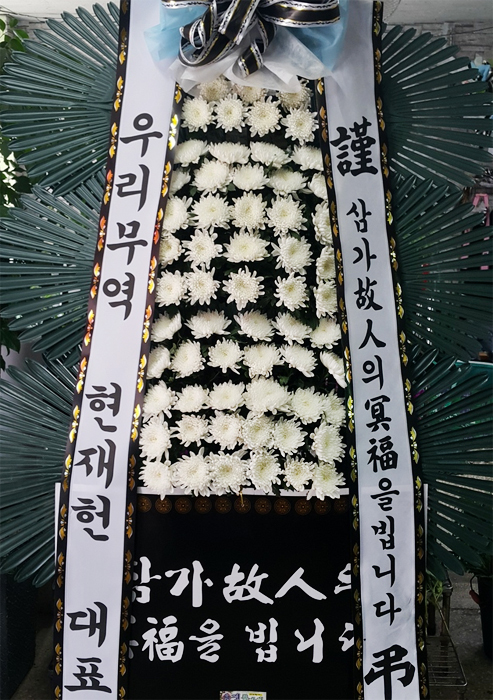 우리무역 현재헌 대표
謹 삼가故人의冥福을빕니다 弔
삼가故人의
冥福을 빕니다